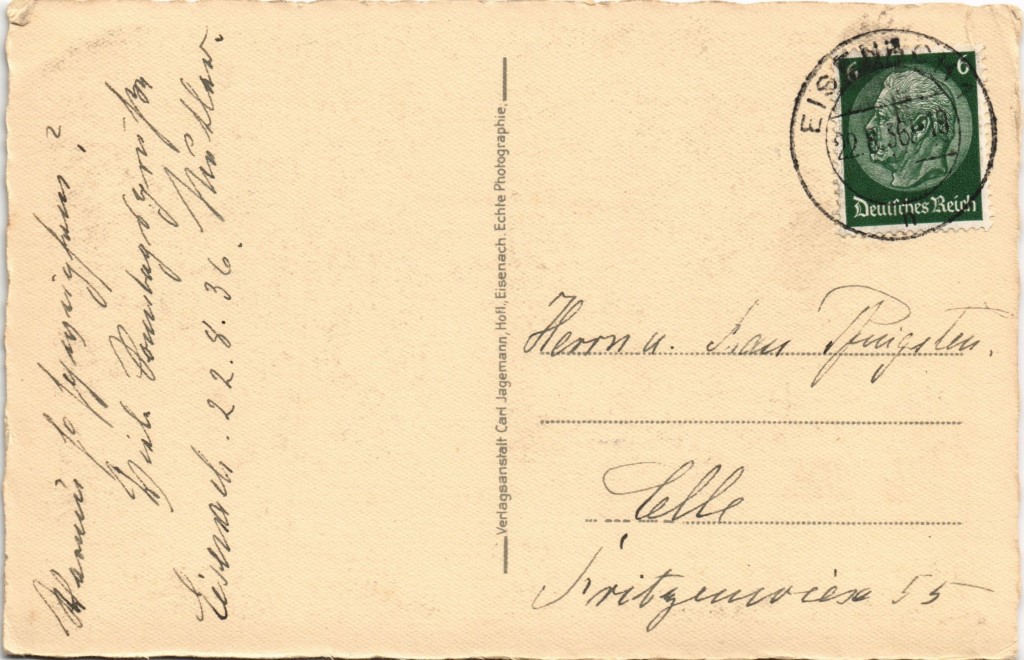 Warum so schweigsam?
Viele Sonntagsgrüße von
Eisenach. 22.8.36.
Verlagsanstalt Carl Jagemann, Hofl., Eisenach. Echte Photographie.
EISENACH
22.8.36
6
6
Deutsches Reich
Herrn u. Frau Pfingsten.
Celle
Fritzenwiese 55